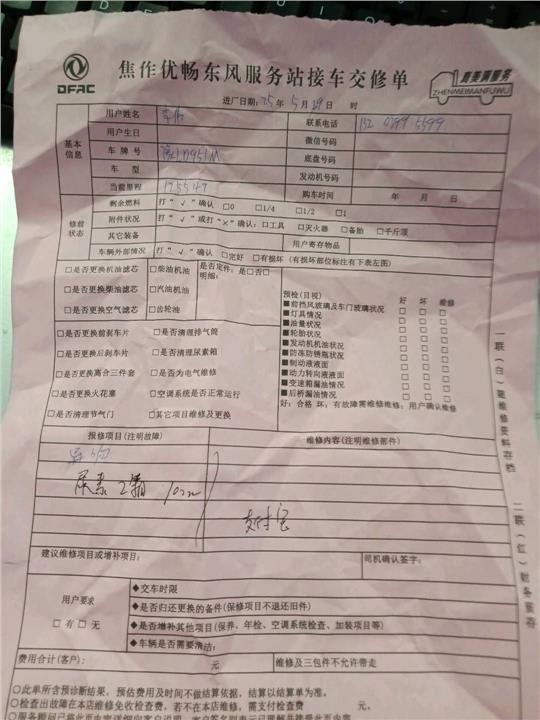 DFAC
焦作优畅东风服务站接车交修单
真美满服务
ZHENMEIMANFUWU
进厂日期:25年5月29日 时
基本信息
用户姓名
联系电话
用户生日
微信号码
车牌号
底盘号码
车型
发动机号码
当前里程 175547
购车时间 年 月 日
修前状态
剩余燃料 打“√”确认 □0 □1/4 □1/2 □1
附件状况 打“√”或打“×”确认:□工具 □灭火器 □备胎 □千斤顶
其它装备
用户寄存物品
车辆外部情况 打“√”确认 □完好 □有损坏(有损坏部位标注有下表左图)
□是否更换机油滤芯 □柴油机油
是否定件:是□否□
明细:
□是否更换柴油滤芯 □汽油机油
□是否更换空气滤芯 □齿轮油
预检(目视) 好 坏 维修
■前挡风玻璃及车门玻璃状况 □ □ □
■灯具情况 □ □ □
■油量状况 □ □ □
■轮胎状况 □ □ □
■发动机机油状况 □ □ □
■防冻防锈瓶状况 □ □ □
■制动液液面 □ □ □
■动力转向液液面 □ □ □
■变速箱漏油情况 □ □ □
■后桥漏油情况 □ □ □
好:合格 坏:有故障需维修维修:用户确认维修
□是否更换前刹车片 □是否清理排气筒
□是否更换后刹车片 □是否清理尿素箱
□是否更换离合三件套 □是否为电气维修
□是否更换火花塞 □空调系统是否正常运行
□是否清理节气门 □其它项目维修及更换
报修项目(注明故障)
维修内容(注明维修部件)
尿素2箱
支付宝
建议维修项目或增补项目:
司机确认签字:
用户要求
□有□无
◆交车时限
◆是否归还更换的备件(保修项目不退还旧件)
◆是否增补其他项目(保养、年检、空调系统检查、加装项目等)
◆车辆是否需要清洁:
费用合计(客户): 元
维修及三包件不允许带走
○此单所含预诊断结果,预估费用及时间不做结算依据,结算以结算单为准。
○检查出故障在本店维修免收检查费,若不在本店维修,需支付检查费 元。
一联(白)随维修资料存档
二联(红)财务留存